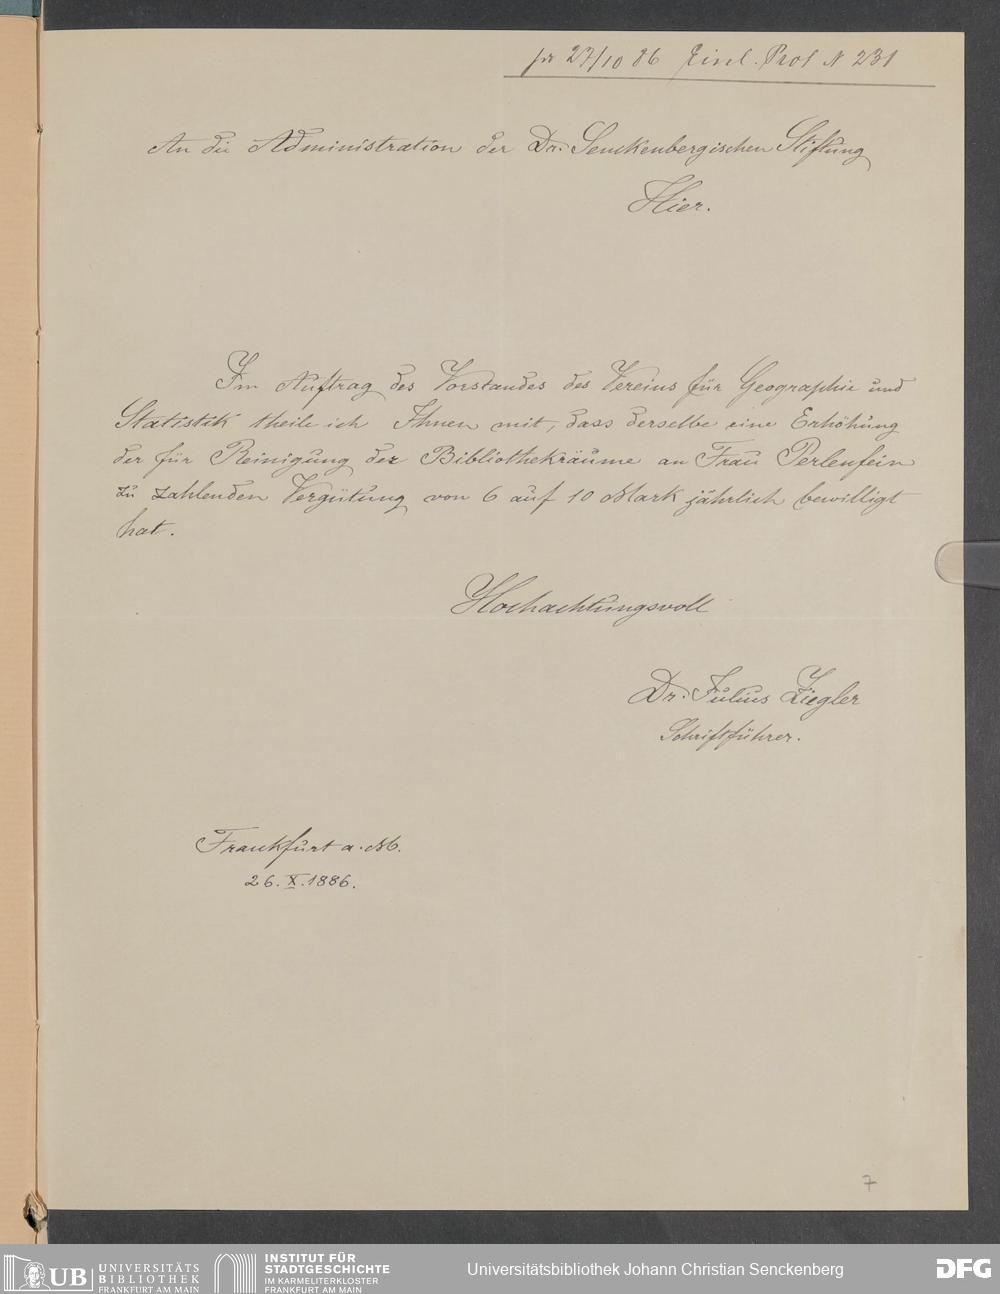 pr 27/10 86 Einl. Prot N 231
An die Administration der Dr. Senckenbergischen Stiftung
Hier.
Im Auftrag des Vorstandes des Vereins für Geographie und
Statistik theile ich Ihnen mit, dass derselbe eine Erhöhung
der für Reinigung der Bibliothekräume an Frau Perlenfein
zu zahlenden Vergütung von 6 auf 10 Mark jährlich bewilligt
hat.
Hochachtungsvoll
Dr. Julius Ziegler
Schriftführer.
Frankfurt a. M.
26. X. 1886.
7
UB UNIVERSITÄTS
BIBLIOTHEK
FRANKFURT AM MAIN
INSTITUT FÜR
STADTGESCHICHTE
IM KARMELITERKLOSTER
FRANKFURT AM MAIN
Universitätsbibliothek Johann Christian Senckenberg
DFG